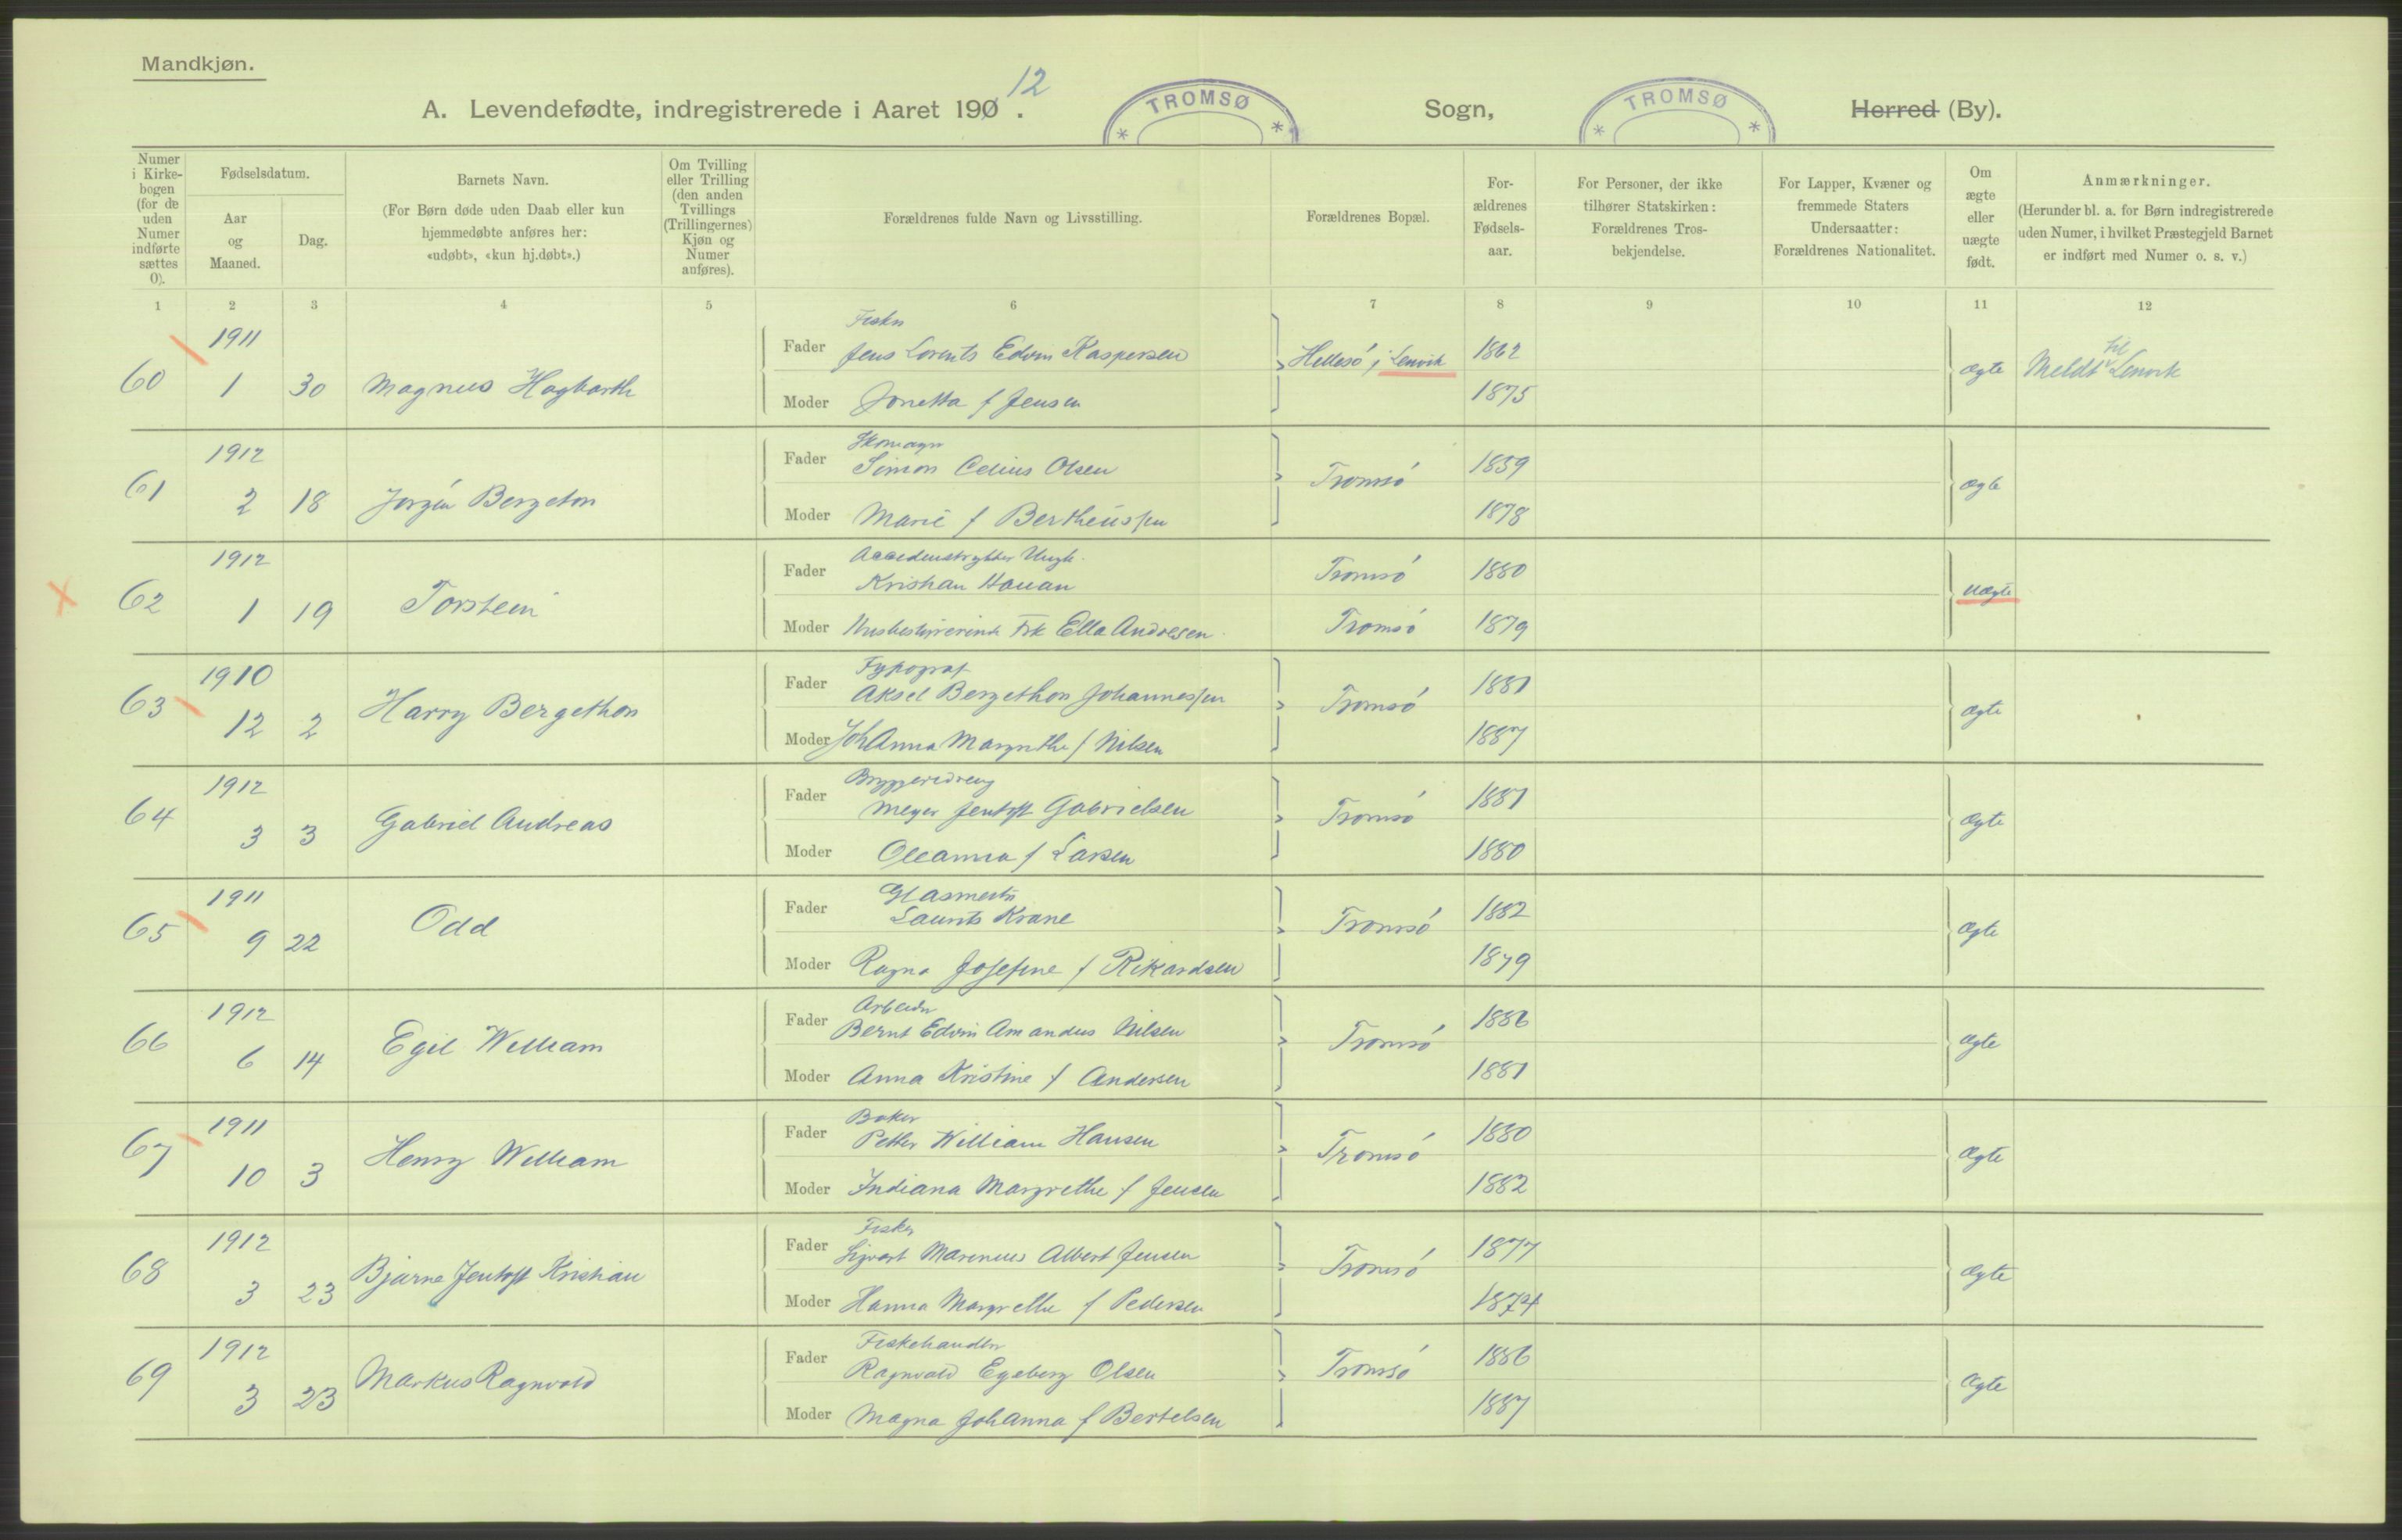 Mandkjøn.
A. Levendefødte, indregistrerede i Aaret 190 12. TROMSØ Sogn, TROMSØ Herred (By).
Numer i Kirkebogen (for de uden Numer indførte sættes 0).
Fødselsdatum.
Aar og Maaned.
Dag.
Barnets Navn.
(For Børn døde uden Daab eller kun hjemmedøbte anføres her: «udøbt», «kun hj.døbt».)
Om Tvilling eller Trilling (den anden Tvillings (Trillingernes) Kjøn og Numer anføres).
Forældrenes fulde Navn og Livsstilling.
Forældrenes Bopæl.
For-ældrenes Fødsels-aar.
For Personer, der ikke tilhører Statskirken: Forældrenes Tros-bekjendelse.
For Lapper, Kvæner og fremmede Staters Undersaatter: Forældrenes Nationalitet.
Om ægte eller uægte født.
Anmærkninger.
(Herunder bl. a. for Børn indregistrerede uden Numer, i hvilket Præstegjeld Barnet er indført med Numer o. s. v.)
1 2 3 4 5 6 7 8 9 10 11 12
1911 Fisker
Fader Jens Lorents Edvin Kaspersen Hellesö i Lenvik 1862
60 1 30 Magnus Hagbarth ægte Meldt til Lenvik
Moder Jonetta f Jensen 1875
1912 Skomager
Fader Simon Celius Olsen 1859
61 2 18 Jørgen Bergeton Tromsö ægte
Moder Marie f Bertheussen 1878
1912 Accedenstrykker Ungk.
Fader Kristian Hauan Tromsö 1880
62 1 19 Torstein uægte
Moder Husbestyrerinde Frk Ella Andresen Tromsö 1879
1910 Typograf
Fader Aksel Bergethon Johannessen 1881
63 12 2 Harry Bergethon Tromsö ægte
Moder JohAnna Margrethe f Nilsen 1887
1912 Bryggeridreng
Fader Meyer Jentoft Gabrielsen 1881
64 3 3 Gabriel Andreas Tromsö ægte
Moder Oleanna f Larsen 1880
1911 Glasmester
Fader Laurits Krane 1882
65 9 22 Odd Tromsö ægte
Moder Ragna Josefine f Rikardsen 1879
1912 Arbeider
Fader Bernt Edvin Amandus Nilsen 1886
66 6 14 Egil William Tromsö ægte
Moder Anna Kristine f Andersen 1881
1911 Baker
Fader Petter William Hansen 1880
67 10 3 Henry William Tromsö ægte
Moder Indiana Margrethe f Jensen 1882
1912 Fisker
Fader Sigvart Marenius Albert Jensen 1877
68 3 23 Bjarne Jentoft Kristian Tromsö ægte
Moder Hanna Margrethe f Pedersen 1874
1912 Fiskehandler
Fader Ragnvald Egeberg Olsen 1886
69 3 23 Markus Ragnvald Tromsö ægte
Moder Magna Johanna f Bertelsen 1887